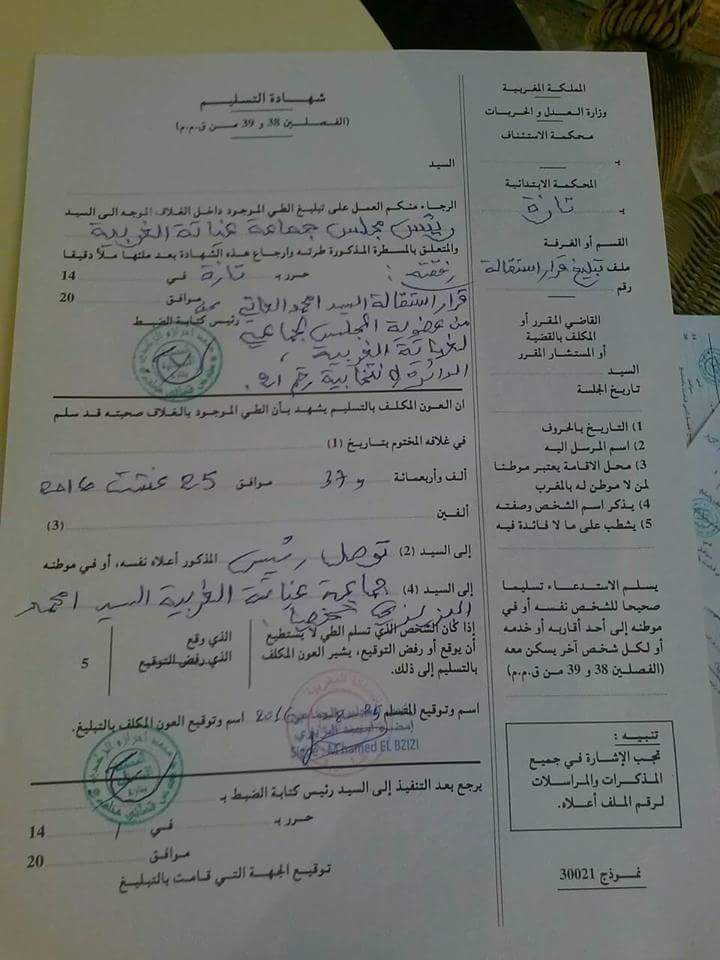 المملكة المغربية
وزارة العدل و الحريات
محكمة الاستئناف
بـ
المحكمة الابتدائية
بـ تازة
القسم أو الغرفة
ملف تبليغ قرار استقالة
رقم
القاضي المقرر أو
المكلف بالقضية
أو المستشار المقرر
السيد
تاريخ الجلسة
1) التاريخ بالحروف
2) اسم المرسل اليه
3) محل الاقامة يعتبر موطنا
لمن لا موطن له بالمغرب
4) يذكر اسم الشخص وصفته
5) يشطب على ما لا فائدة فيه
يسلم الاستدعاء تسليما
صحيحا للشخص نفسه أو في
موطنه إلى أحد أقاربه أو خدمه
أو لكل شخص آخر يسكن معه
(الفصلين 38 و 39 من ق.م.م)
تنبيه :
تجب الإشارة في جميع
المذكرات والمراسلات
لرقم الملف أعلاه.
نموذج 30021
شهادة التسليم
(الفصلين 38 و 39 من ق.م.م)
السيد
الرجاء منكم العمل على تبليغ الطي الموجود داخل الغلاف الموجه الى السيد
رئيس مجلس جماعة غياثة الغربية
والمتعلق بالمسطرة المذكورة طرته وارجاع هذه الشهادة بعد ملئها ملأ دقيقا
رفقته : حرر بـ تازة في 14
قرار استقالة السيد امحمد موافق 20
من عضوية المجلس الجماعي رئيس كتابة الضبط
لغياثة الغربية ،
الدائرة الانتخابية رقم 21.
ان العون المكلف بالتسليم يشهد بأن الطي الموجود بالغلاف صحبته قد سلم
في غلافه المختوم بتاريخ (1)
ألف وأربعمائة و 37 موافق 25 غشت 2016
ألفين (3)
إلى السيد (2) توصل رئيس المذكور أعلاه نفسه، أو في موطنه
إلى السيد (4) جماعة غياثة الغربية السيد امحمد
البزيزي شخصيا
إذا كان الشخص الذي تسلم الطي لا يستطيع
أن يوقع أو رفض التوقيع، يشير العون المكلف
بالتسليم إلى ذلك.
الذي وقع
الذي رفض التوقيع
5
اسم وتوقيع المتسلم اسم وتوقيع العون المكلف بالتبليغ.
EL BZIZI
يرجع بعد التنفيذ إلى السيد رئيس كتابة الضبط بـ
حرر بـ في 14
موافق 20
توقيع الجهة التي قامت بالتبليغ